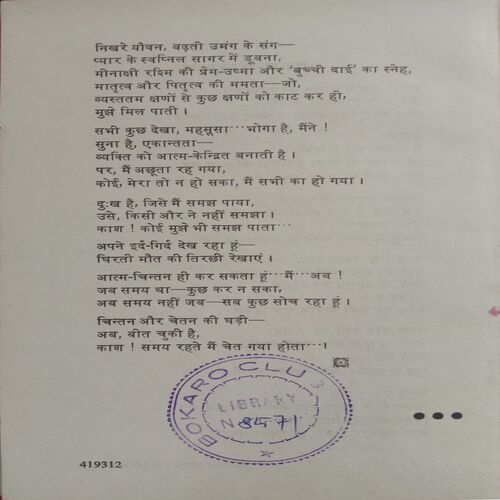 निखरे यौवन, बढ़ती उमंग के संग—
प्यार के स्वप्निल सागर में डूबना,
मीनाक्षी रश्मि की प्रेम-उष्मा और 'बुच्ची दाई' का स्नेह,
मातृत्व और पितृत्व की ममता—जो,
व्यस्ततम क्षणों से कुछ क्षणों को काट कर ही,
मुझे मिल पाती ।
सभी कुछ देखा, महसूसा···भोगा है, मैंने !
सुना है, एकान्तता—
व्यक्ति को आत्म-केन्द्रित बनाती है ।
पर, मैं अछूता रह गया,
कोई, मेरा तो न हो सका, मैं सभी का हो गया ।
दुःख है, जिसे मैं समझ पाया,
उसे, किसी और ने नहीं समझा ।
काश ! कोई मुझे भी समझ पाता···
अपने इर्द-गिर्द देख रहा हूं—
घिरती मौत की तिरछी रेखाएं ।
आत्म-चिन्तन ही कर सकता हूं···मैं···अब !
जब समय था—कुछ कर न सका,
अब समय नहीं जब—सब कुछ सोच रहा हूं ।
चिन्तन और चेतन की घड़ी—
अब, बीत चुकी है,
काश ! समय रहते मैं चेत गया होता···।
BOKARO CLUB
LIBRARY
8571
419312